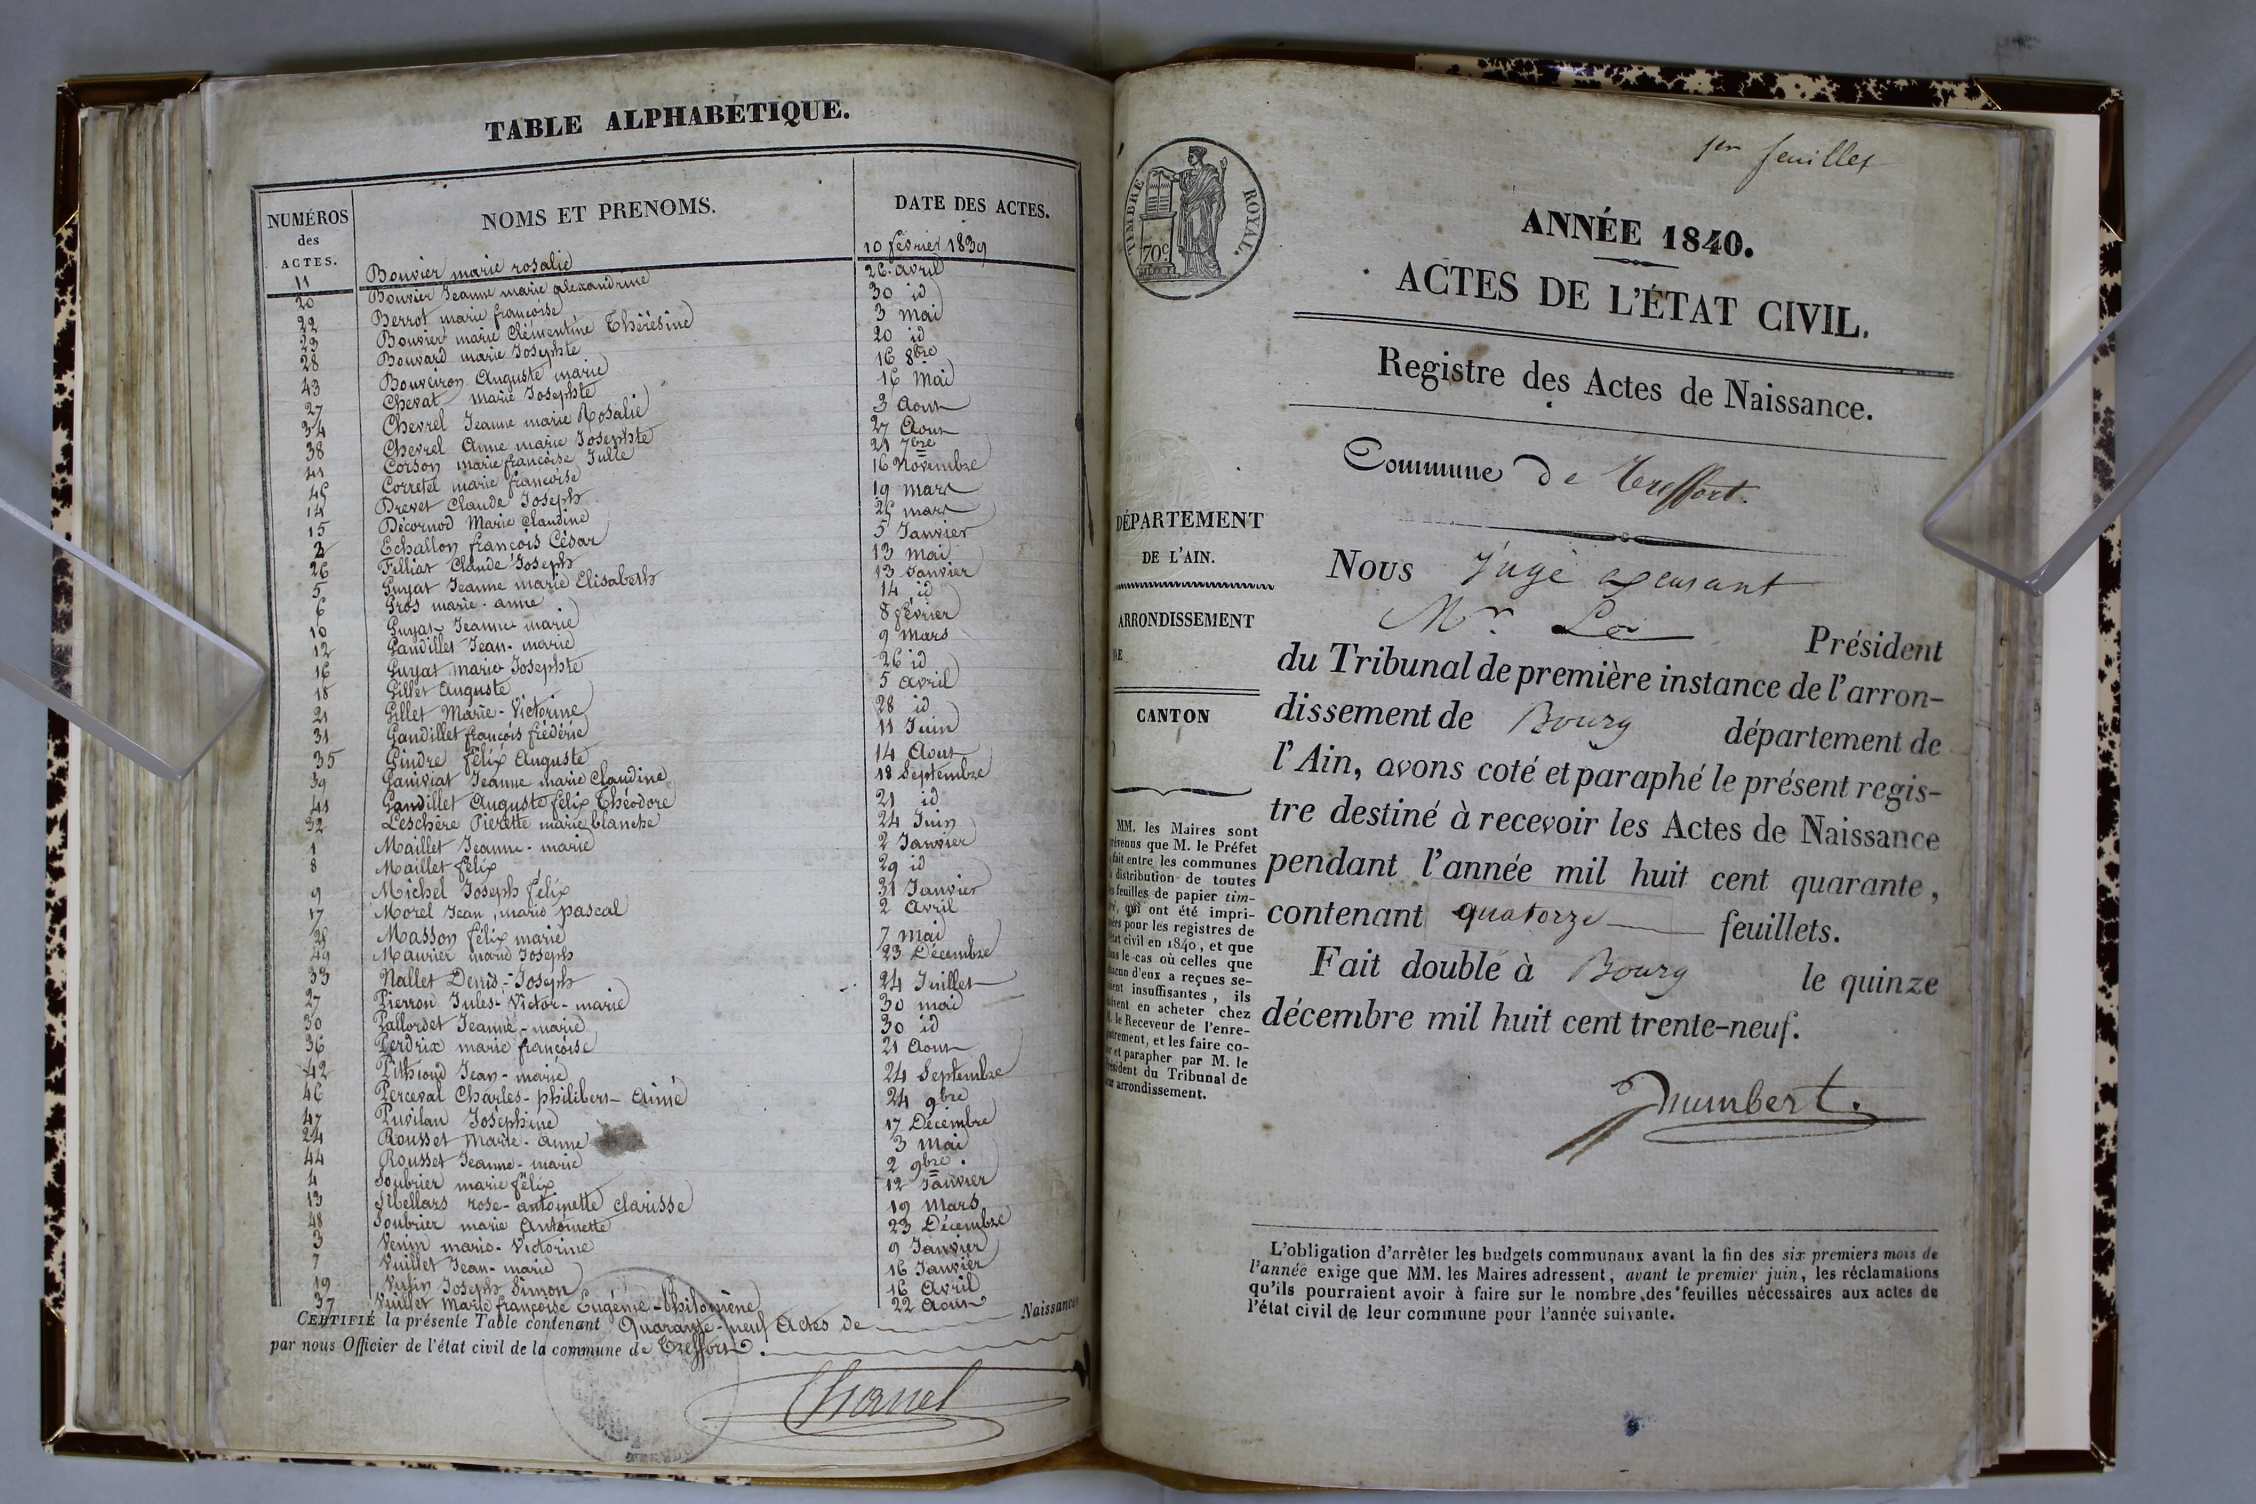 TABLE ALPHABÉTIQUE.
NUMÉROS des ACTES. NOMS ET PRENOMS. DATE DES ACTES.
11 Bouvier marie rosalie 10 février 1839
20 Bouvier Jeanne marie alexandrine 26 avril
22 Berrot marie françoise 30 id
23 Bouvier marie Clémentine Thérésine 3 mai
28 Bouvard marie Josephte 20 id
43 Bouveiron Auguste marie 16 8bre
27 Chevat marie Josephte 16 Mai
34 Chevrel Jeanne marie Rosalie 3 Aout
38 Chevrel Anne marie Josephte 27 Aout
41 Corson marie françoise Julie 21 7bre
45 Corretel marie françoise 16 Novembre
14 Drevet Claude Joseph 19 mars
15 Décornod Marie Claudine 26 mars
2 Echallon françois César 5 Janvier
26 Filliat Claude Joseph 13 mai
5 Guyat Jeanne marie Elisabeth 13 Janvier
6 Gros marie-anne 14 id
10 Guyat Jeanne marie 8 février
12 Gandillet Jean-marie 9 Mars
16 Guyat marie Josephte 26 id
18 Gillet Auguste 5 avril
21 Gillet Marie-Victorine 28 id
31 Gandillet françois frédéric 11 Juin
35 Gindre félix Auguste 14 Aout
39 Ganiviat Jeanne marie Claudine 18 Septembre
41 Gandillet Auguste félix Théodore 21 id
32 Leschère Pierette marie blanche 24 Juin
1 Maillet Jeanne-marie 2 Janvier
8 Maillet félix 29 id
9 Michel Joseph félix 31 Janvier
17 Morel Jean marie pascal 2 Avril
25 Masson félix marie 7 mai
49 Maurier marie Joseph 23 Décembre
33 Nallet Denis-Joseph 24 Juillet
27 Pierron Jules-Victor-marie 30 mai
30 Pallordet Jeanne-marie 30 id
36 Perdrix marie françoise 21 Aout
42 Pithioud Jean-marie 24 Septembre
46 Perceval Charles-philibert-aimé 24 9bre
47 Puvilan Joséphine 17 Décembre
24 Rousset Marie-anne 3 Mai
44 Rousset Jeanne-marie 2 9bre.
4 Soubrier marie félix 12 Janvier
13 Sibellars rose-antoinette clarisse 19 Mars
48 Soubrier marie Antoinette 23 Décembre
3 Venin marie-Victorine 9 Janvier
7 Vuillet Jean-marie 16 Janvier
19 Joseph Simon 16 Avril
37 Vuillet Marie françoise Eugénie-Philomène 22 Aout
CERTIFIÉ la présente Table contenant Quarante-neuf Actes de Naissances
par nous Officier de l'état civil de la commune de Treffort.
Chanel
TIMBRE ROYAL.
70c
1er feuillet
ANNÉE 1840.
ACTES DE L'ÉTAT CIVIL.
Registre des Actes de Naissance.
Commune de Treffort.
DÉPARTEMENT
DE L'AIN.
ARRONDISSEMENT
CANTON
MM. les Maires sont
prévenus que M. le Préfet
fait entre les communes
distribution de toutes
feuilles de papier tim-
bré, qui ont été impri-
mées pour les registres de
l'état civil en 1840, et que
dans le cas où celles que
chacun d'eux a reçues se-
raient insuffisantes, ils
doivent en acheter chez
M. le Receveur de l'enre-
gistrement, et les faire co-
ter et parapher par M. le
Président du Tribunal de
leur arrondissement.
Nous Juge
Mr. Président
du Tribunal de première instance de l'arron-
dissement de Bourg département de
l'Ain, avons coté et paraphé le présent regis-
tre destiné à recevoir les Actes de Naissance
pendant l'année mil huit cent quarante,
contenant quatorze feuillets.
Fait double à Bourg le quinze
décembre mil huit cent trente-neuf.
L'obligation d'arrêter les budgets communaux avant la fin des six premiers mois de
l'année exige que MM. les Maires adressent, avant le premier juin, les réclamations
qu'ils pourraient avoir à faire sur le nombre des feuilles nécessaires aux actes de
l'état civil de leur commune pour l'année suivante.